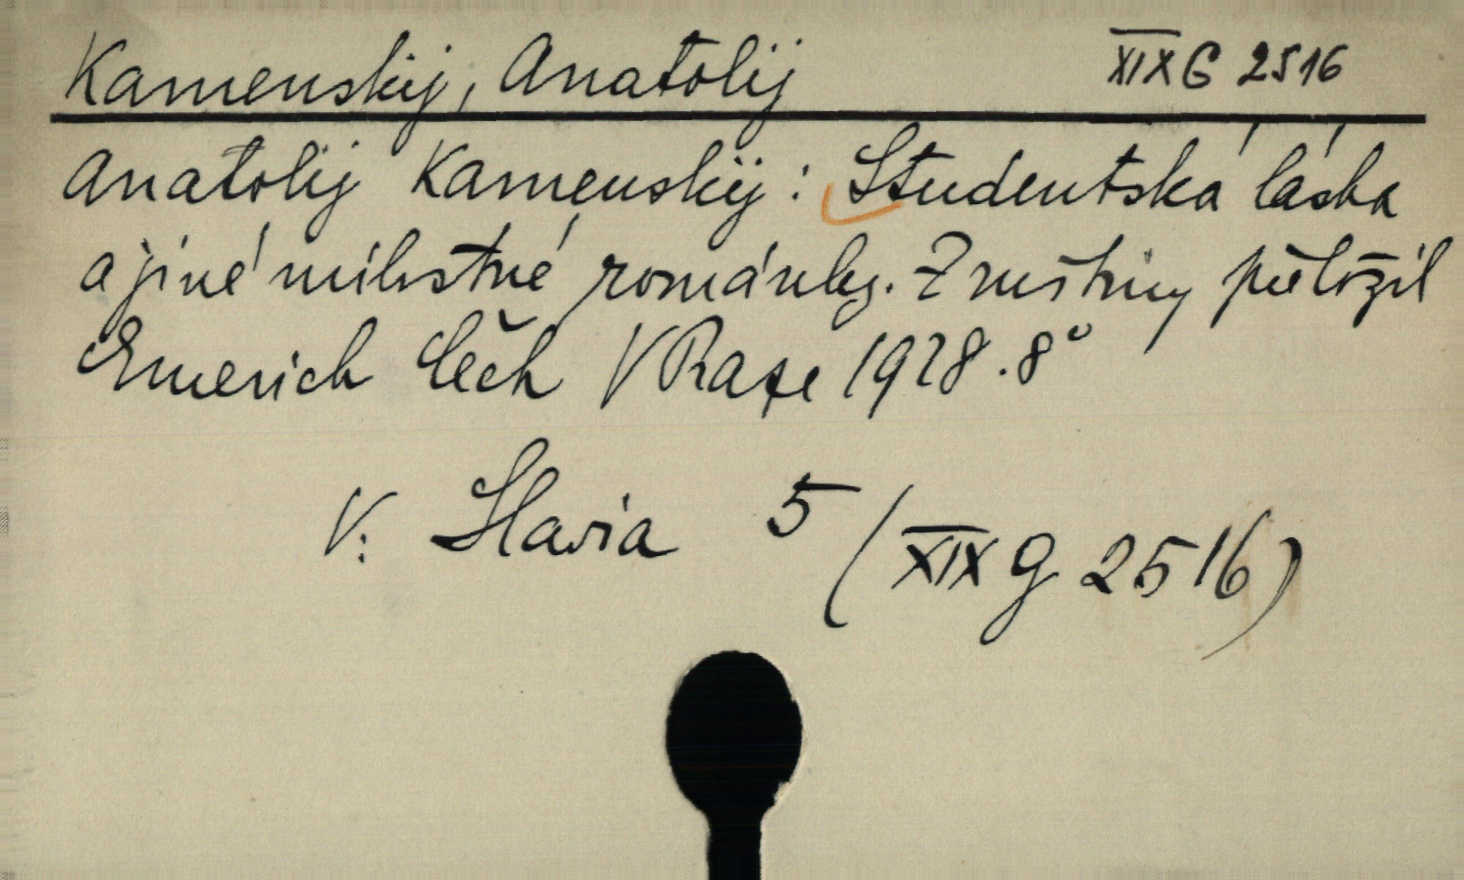 Kamenskij, Anatolij XIX G 2516
Anatolij Kamenskij: Studentská láska
a jiné milostné románky. Z ruštiny přeložil
Emerich Čech V Praze 1928. 8°
V: Slavia 5 (XIX G 2516)